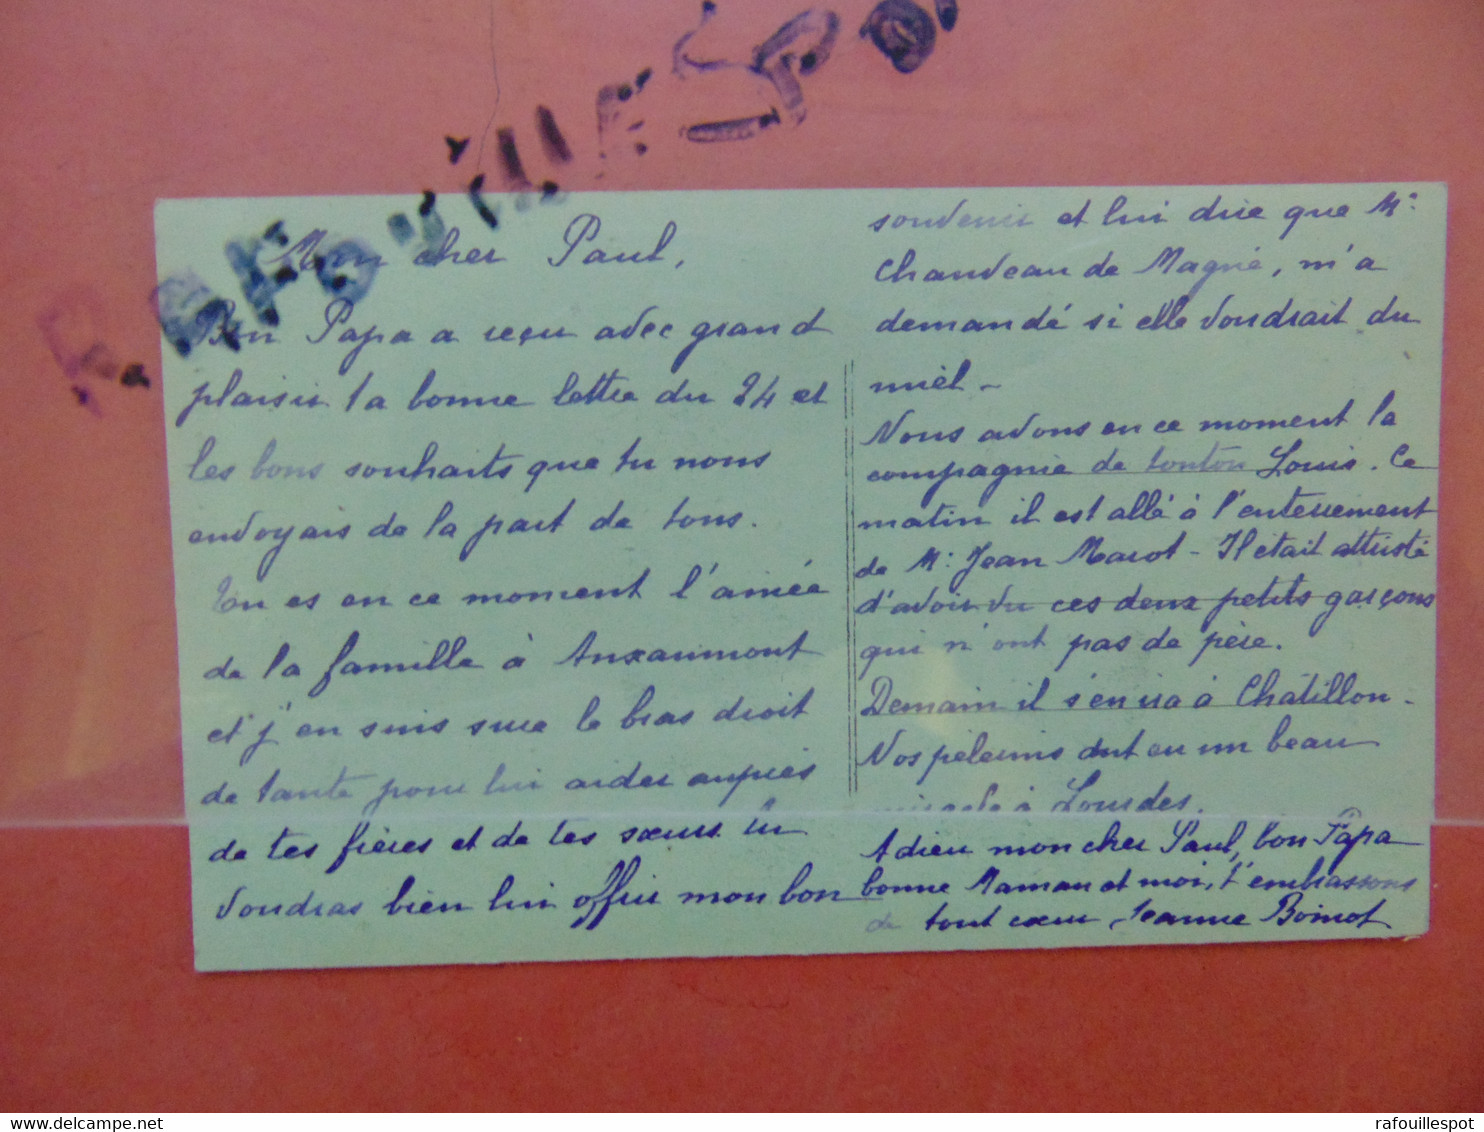 Mon cher Paul,
Bon Papa a reçu avec grand
plaisir ta bonne lettre du 24 et
les bons souhaits que tu nous
envoyais de la part de tous.
Tu es en ce moment l'aînée
de la famille à Anxaumont
et j'en suis sure le bras droit
de tante pour lui aider auprès
de tes frères et de tes sœurs tu
voudras bien lui offrir mon bon
souvenir et lui dire que Mr
Chauveau de Magné, m'a
demandé si elle voudrait du
miel -
Nous avons en ce moment la
compagnie de tonton Louis. Ce
matin il est allé à l'enterrement
de Mr Jean Marot - Il était attristé
d'avoir vu ces deux petits garçons
qui n'ont pas de père.
Demain il s'en ira à Châtillon -
Nos pèlerins ont eu un beau
miracle à Lourdes.
Adieu mon cher Paul, bon Papa
bonne Maman et moi, t'embrassons
de tout cœur, Jeanne Boinot
RAFOUILLESPOT
rafouillespot